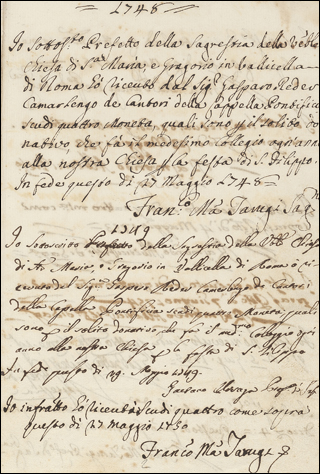 1748
Io Sottos.tto Prefetto della Sagrestia della Ven.le
Chiesa di S.ta Maria e Gregorio in Vallicella
di Roma hò ricevuto dal Sig.r Gasparo Redes
Camarlengo de Cantori della Cappella Pontificia
scudi quattro Moneta, quali sono p il solito do
nativo che fà il medesimo Collegio ogn'anno
alla nostra Chiesa p la festa di S. Filippo.
In fede questo di 27 Maggio 1748
Fran.co M.a Tarugi Sag.no
1749
Io Sottoscritto Prefetto della Sagrestia della V.le Chiesa
di S. Maria, e Gregorio in Vallicella di Roma ò ri
cevuto dal Sig.r Gasparo Redes Camerlengo de Cantori
della Cappella Pontificia scudi quattro Moneta quali
sono p il solito donativo che fà il med.mo Collegio ogni
anno alla nostra Chiesa p la festa di S. Filippo
In fede questo dì 29 Maggio 1749.
Io infratto hò ricevuti scudi quattro come sopra
questo dì 27 Maggio 1750
Franco M.a Tarugi